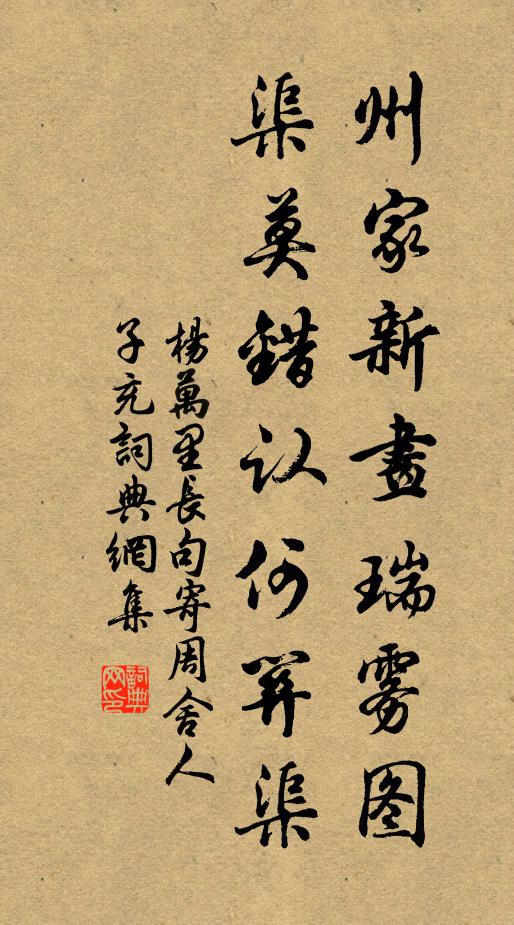 州家新畫瑞雾图
渠莫錯认何羿渠
楊萬里長句寄周舍人
子充詞典網集
詞典网印